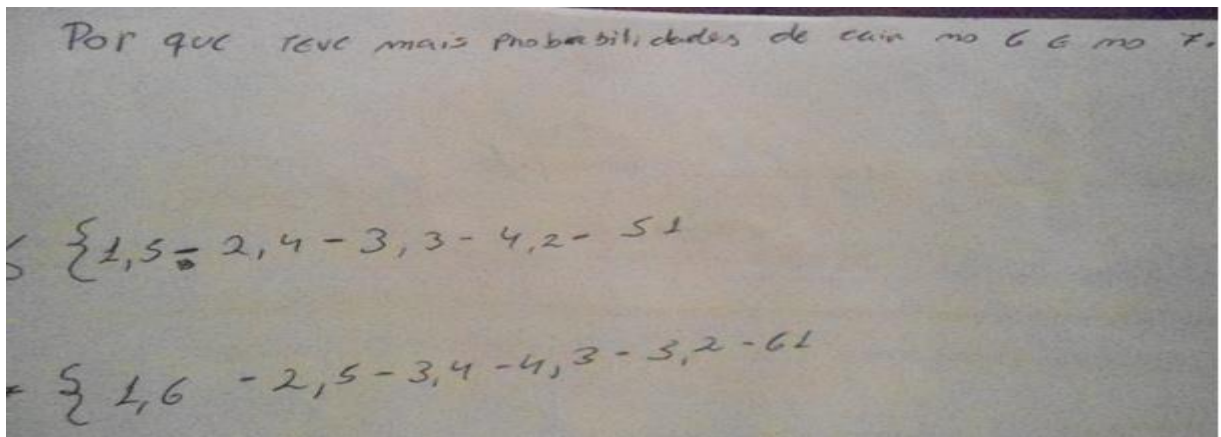 Por que Teve mais Probabilidades de cair no 6 e no 7.
6 {1,5 - 2,4 - 3,3 - 4,2 - 51
{ 1,6 - 2,5 - 3,4 - 4,3 - 5,2 - 61